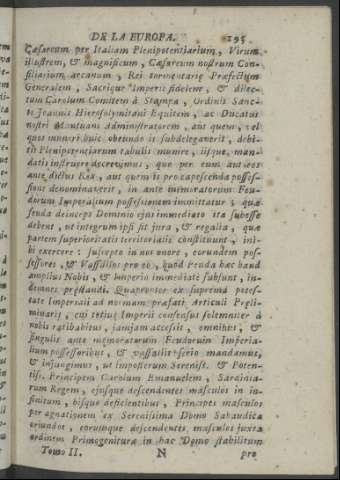 DE LA EUROPA. 195
Cæsareum per Italiam Plenipotentiarium, Virum
illustrem, & magnificum, Cæsareum nostrum Con-
siliarium arcanum, Rei tormentariæ Præfectum
Generalem, Sacrique Imperii fidelem, & dilec-
tum Carolum Comitem à Stampa, Ordinis Sanc-
ti Joannis Hierosolymitani Equitem, ac Ducatus
nostri Mantuani Administratorem, aut quem, vel
quos muneri huic obeundo is subdelegaverit, debi-
tis Plenipotentiarum tabulis munire, iisque, man-
datis instruere decrevimus, quo per eum aut eos
ante dictus Rex, aut quem is pro capescenda posses-
sione denominaverit, in ante memoratorum Feu-
dorum Imperialium possessionem immittatur; quæ
feuda deinceps Dominio ejus immediato ita subesse
debent, ut integrum ipsi sit jura, & regalia, quæ
partem superioritatis territorialis constituunt, ini-
bi exercere: suscepta in nos onere, eorundem pos-
sessores, & Vassallos pro eo, quod Feuda hæc haud
amplius Nobis, & Imperio immediatè subsunt, in-
demnes præstandi. Quapropter ex suprema potes-
tate Imperiali ad normam præfati Articuli Præli-
minaris, cui totius Imperii consensus solemniter à
nobis ratihabitus, jamjam accessit, omnibus, &
singulis ante memoratorum Feudorum Imperia-
lium possessoribus, & vassallis serio mandamus,
& injungimus, ut imposterum Sereniss. & Poten-
tiss. Principem Carolum Emanuelem, Sardiniæ-
rum Regem, ejusque descendentes masculos in in-
finitum, hisque deficientibus, Principes masculos
per agnationem ex Serenissima Domo Sabaudica
oriundos, eorumque descendentes masculos juxta
ordinem Primogenituræ in hac Domo stabilitum
Tomo II. N pro